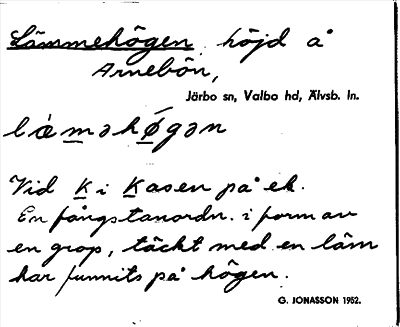 Lämmehögen, höjd å
Arnebön,
Järbo sn, Valbo hd, Älvsb. ln.
læ̀məhǿgən
Vid K i Kasen på ek.
En fångstanordn. i form av
en grop, täckt med en läm
har funnits på högen.
G. JONASSON 1952.